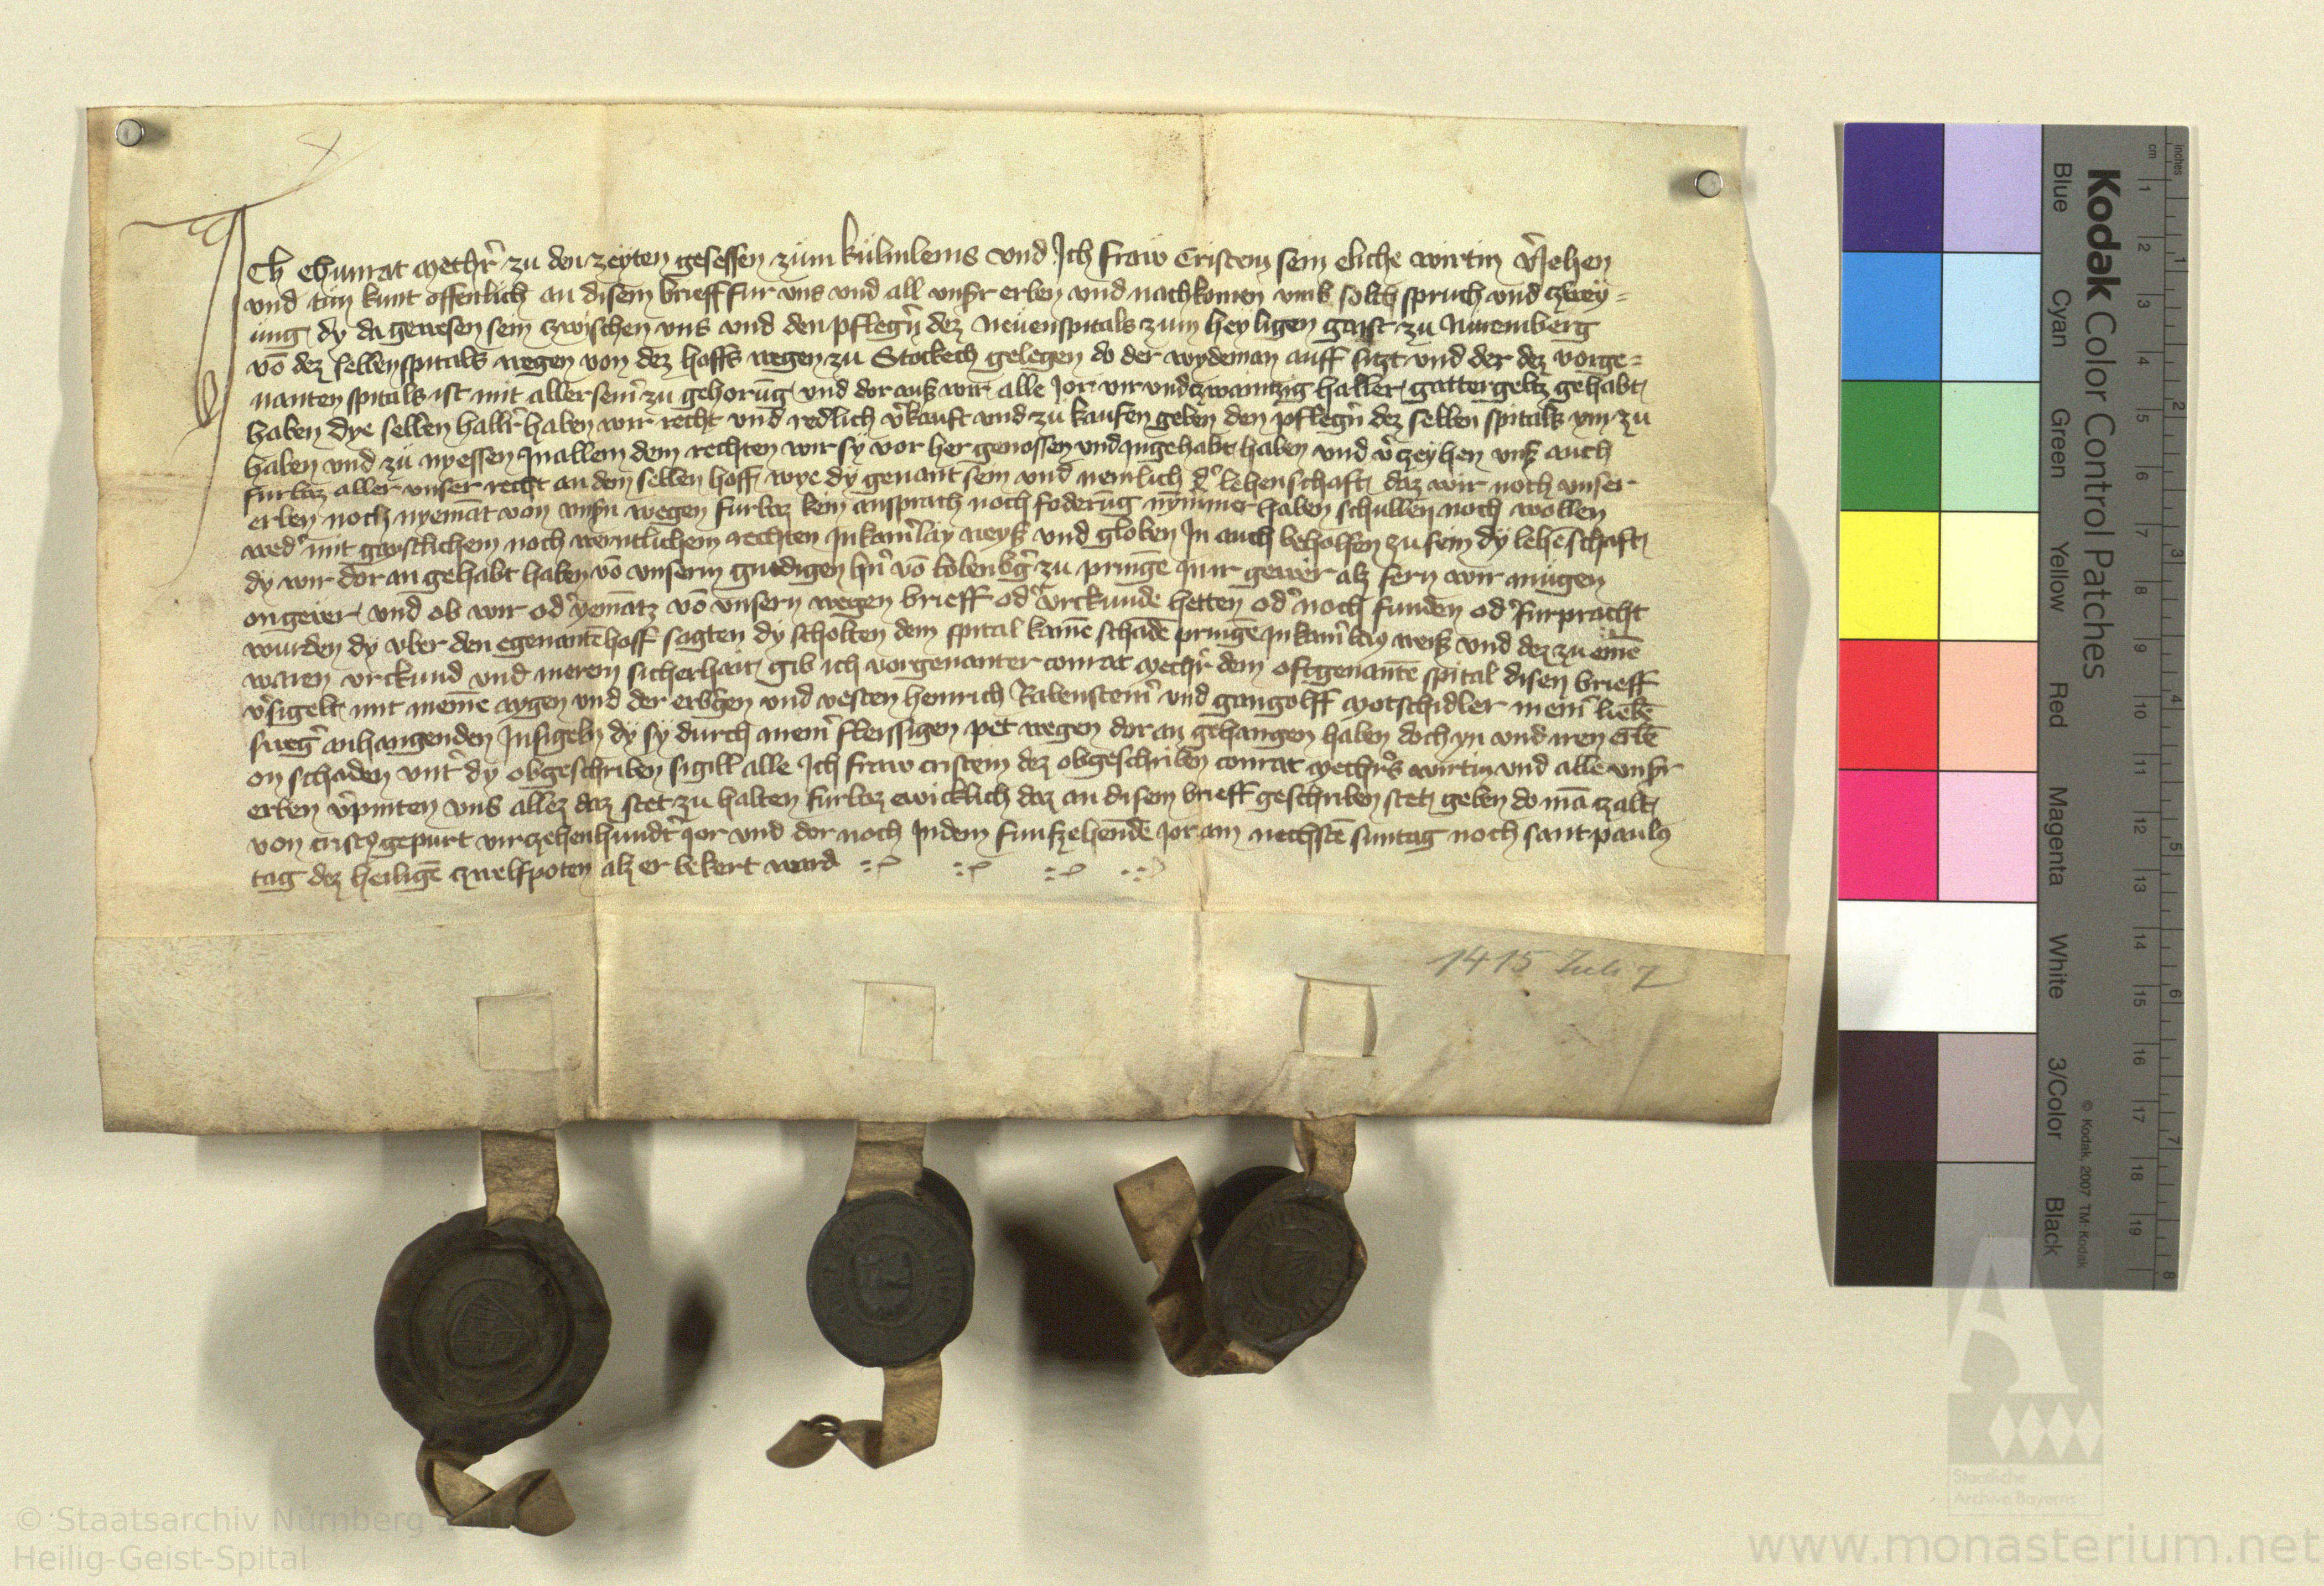 Ich Chunrat Mechr̃ zu den zeyten gesessen zům külmleins vnd Ich fraw Cristein sein eliche wirtin v̉Jehen
vnd tůn kunt offenlich an disem brieff fur vns vnd all vnsr̃ erben vnd nachkomen vmb solch spruch vnd zwey=
ung dy da gewesen sein zwischen vns vnd den pflegñ dez Neẅenspitals zum heyligen gayst zu Nuremberg
vō dez selben spitals wegen von dez hoffs wegen zu Stockech gelegen do der wydeman auff sitzt vnd der dez vorge=
nanten spitals ist mit aller seinr̃ zu gehorūg vnd dor auß wir alle Jor vir vnd zwaintzig haller gattergeltz gehabt
haben dye selben hallr̃ haben wir recht vnd redlich v̉kauft vnd zu kaufen geben den pflegñ dez selben spitals yn zu
haben vnd zu nyessen Jn allem dem rechten wir sy vor her genossen vnd Jngehabt haben vnd v̉zeyhen vnß auch
furbaz aller vnser recht an dem selben hoff wye dy genant sein vnd nemlich d̉ lehenschaft daz wir noch vnser
erben noch nyemāt von vnsrñ wegen furbaz kein ansprach noch foderūg nȳmmer haben schullen noch wollen
wed̉ mit gaystlichem noch werntlichem rechten Jn kainr̃lay weyß vnd globen Jn auch beholfen zu sein dy lehēschaft
dy wir dor an gehabt haben vō vnserm gnedigen hr̃n vō bobenbg̃ zu pringē Jn ir gewer alz fern wir mügen
on gever vnd ob wir od̉ yemātz vō vnsern wegen brieff od̉ vrckunde hetten od̉ noch funden od̉ furpracht
wurden dy vber den egenantē hoff sagten dy scholten dem spital kainē schadē pringē Jn kainr̃ lay weiß vnd dez zu einē
waren vrckund vnd merern sicherhait gib ich vorgenanter conrat Mechr̃ dem oftgenantē spital disen brieff
v̉sigelt mit meinē aygen vnd der erbg̃en vnd vesten heinrich Rabensteinr̃ vnd gangolff Motschidler meinr̃ liebē
sweg̃ anhangenden Jnsigeln dy sy durch meinr̃ fleissigen pet wegen dor an gehangen haben doch yn vnd iren erbē
on schaden vntr̃ dy obgeschriben sigill alle Ich fraw cristein dez obgeschriben conrat Mechr̃s wirtin vnd alle vnsr̃
erben v̉pinten vns allez daz stet zu halten furbaz ewicklich daz an disem brieff geschriben stet geben do mā zalt
von cristꝰ gepurt virzehenhundt̃ Jor vnd dor noch Jn dem funfzehendē Jor am nechstē suntag noch sant paulꝰ
tag dez heiligē zwelfpoten alz er bekert ward
1415 Juli 7
Kodak Color Control Patches
Blue Cyan Green Yellow Red Magenta White 3/Color Black
© Kodak, 2007 TM: Kodak
cm 1 2 3 4 5 6 7 8 9 10 11 12 13 14 15 16 17 18 19
inches 1 2 3 4 5 6 7 8
Staatliche
Archive Bayerns
© Staatsarchiv Nürnberg
Heilig-Geist-Spital
www.monasterium.net